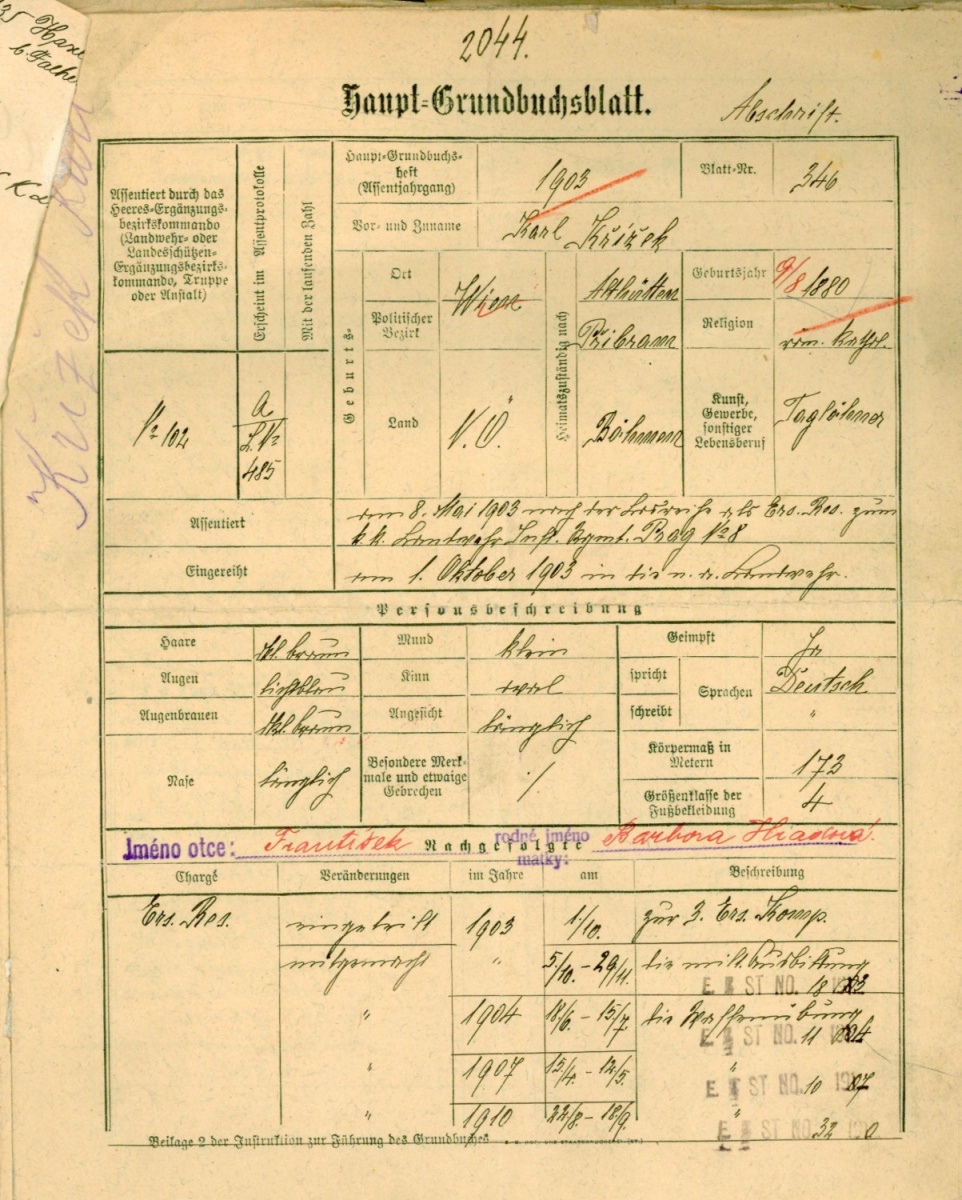 2044.
Haupt-Grundbuchsblatt.
Abschrift.
Křížek Karl
Assentiert durch das
Heeres-Ergänzungs-
bezirkskommando
(Landwehr- oder
Landesschützen-
Ergänzungsbezirks-
kommando, Truppe
oder Anstalt)
Erscheint im Assentprotokolle
Mit der laufenden Zahl
Haupt-Grundbuchs-
heft
(Assentjahrgang)
1903
Blatt-Nr.
346
Vor- und Zuname
Karl Křižek
Geburts-
Ort
Wien
Politischer
Bezirk
Land
N. Ö.
Heimatszuständig nach
Althütten
Přibram
Böhmen
Geburtsjahr
9/8 1880
Religion
röm. kathol.
Kunst,
Gewerbe,
sonstiger
Lebensberuf
Taglöhner
Nr 102
A
L. Nr
485
Assentiert
am 8. Mai 1903 nach der Losreihe als Ers. Res. zum
k. k. Landwehr Inft. Rgmt. Prag No 8
Eingereiht
am 1. Oktober 1903 in die n. a. Landwehr.
Personsbeschreibung
Haare
dkl. braun
Mund
klein
Geimpft
Ja
Augen
lichtblau
Kinn
oval
spricht
Sprachen
Deutsch
Augenbrauen
dkl. braun
Angesicht
länglich
schreibt
"
Nase
länglich
Besondere Merk-
male und etwaige
Gebrechen
./.
Körpermaß in
Metern
173
Größenklasse der
Fußbekleidung
4
Jméno otce: František
Nachgefolgte
rodné jméno
matky:
Barbora
Chargé
Veränderungen
im Jahre
am
Beschreibung
Ers. Res.
eingeteilt
1903
1./10.
zur 3. Ers. Komp.
mitgemacht
"
5./10. - 29/11.
die milt. Ausbildung
E ST NO. 18
"
1904
18/6. - 15/7.
die Waffenübung
E ST NO. 11
"
1907
15/4. - 12/5.
"
E ST NO. 10
"
1910
22/8. - 18/9.
"
E ST NO 32
Beilage 2 der Instruktion zur Führung des Grundbuches